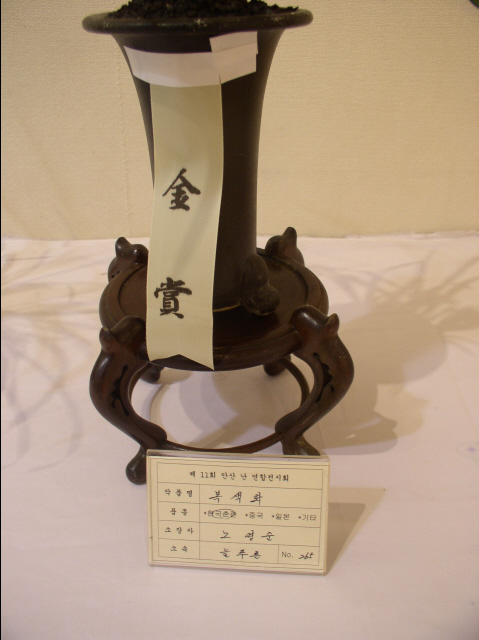 金
賞
제 11회 안산 난 연합전시회
작품명 복색화
품종 •한국춘란 •중국 •일본 •기타
소장자 노영순
소속 늘푸른 No. 265